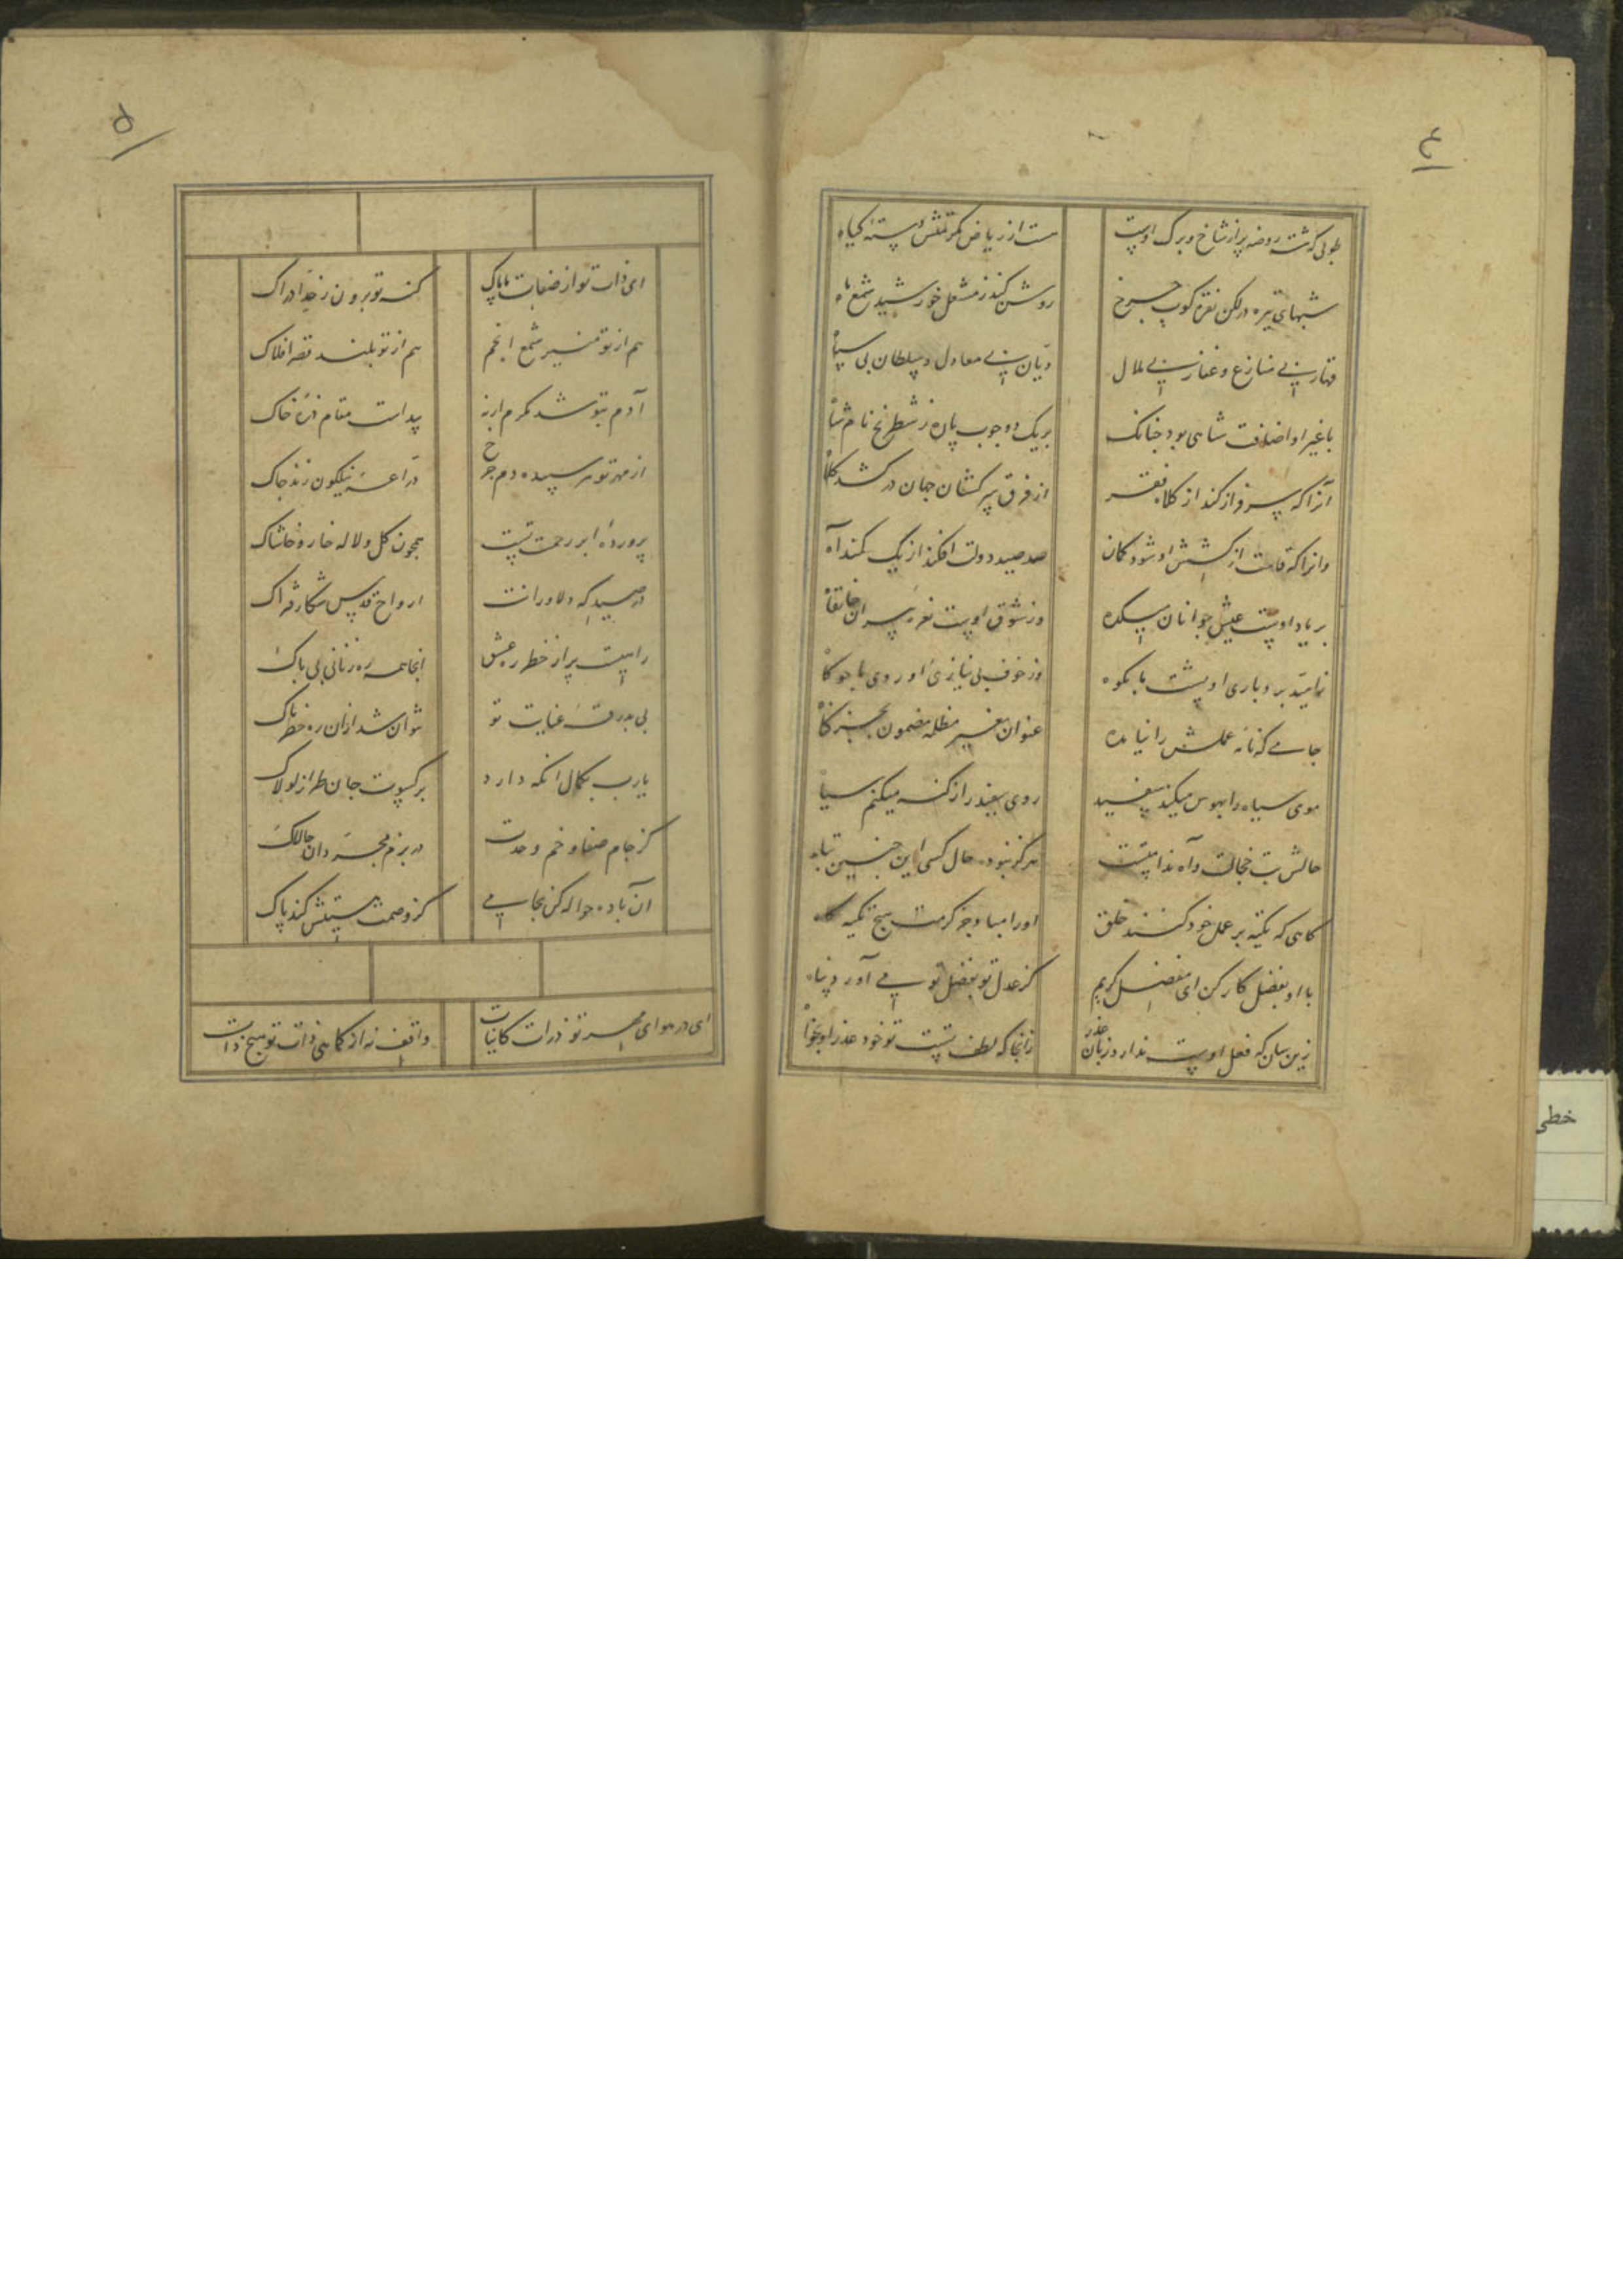 ۴
طوبی که گشته روضه پر از شاخ و برگ اوست
هست از ریاض مکرمتش رسته گیاه
شبهای تیره در لکن نقره کوب چرخ
روشن کند ز مشعل خورشید شمع ماه
قهار بی منازع و غفار بی ملال
دیان بی معادل و سلطان بی سپاه
با غیر او اضافت شاهی بود چنانک
بر یک دو چوب پاره ز شطرنج نام شاه
آنرا که سرفراز کند از کلاه فقر
از فرق سرکشان جهان در کشد کلاه
وانرا که قامت از کشش او شود کمان
صد صید دولت افکند از یک کمند آه
بر یاد اوست عیش جوانان میکده
وز شوق اوست نعره پیران خانقاه
زامید بردباری او پشت ما بکوه
وز خوف بی نیازی او روی ما چو کاه
جامی که نامه عملش را نیامده
عنوان بغیر مظلمه مضمون بجز گناه
موی سیاه را بهوس میکند سفید
روی سفید را ز گنه میکنم سیاه
حالش تب خجالت و آه ندامتست
هرگز نبود حال کسی این چنین تباه
گاهی که تکیه بر عمل خود کنند خلق
او را مباد جز کرمت هیچ تکیه گاه
با او بفضل کار کن ای مفضل کریم
کز عدل تو بفضل تو می آورد پناه
زین سان که فعل اوست ندارد زبان عذر
زانجا که لطف تست تو خود عذر او بخواه
۵
ای ذات تو از صفات ما پاک
کنه تو برون ز حد ادراک
هم از تو منیر شمع انجم
هم از تو بلند قصر افلاک
آدم بتو شد مکرم ارنه
پیداست مقام ذره خاک
از مهر تو هر سپیده دم چرخ
دراعه نیلگون زند چاک
پرورده ابر رحمت تست
همچون گل و لاله خار و خاشاک
در صیدگه دلاورانت
ارواح قدس شکار فتراک
راهیست پر از خطر ره عشق
انجا همه رهزنان بی باک
بی بدرقه عنایت تو
نتوان شد ازان ره خطرناک
یارب بکمال انکه دارد
بر کسوت جان طراز لولاک
کز جام صفا و خم وحدت
در بزم مجردان چالاک
آن باده حواله کن بجامی
کز وصمت هستیش کند پاک
ای در هوای مهر تو ذرات کاینات
واقف نه از کماهی ذات تو هیچ ذات
خطی